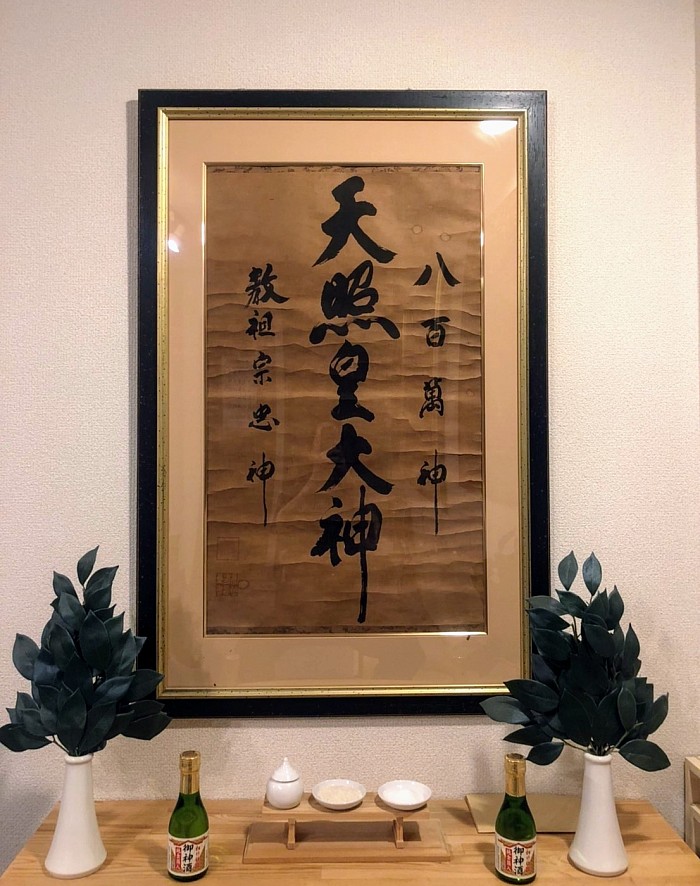 八百萬神
天照皇大神
教祖宗忠神
御神酒
御神酒